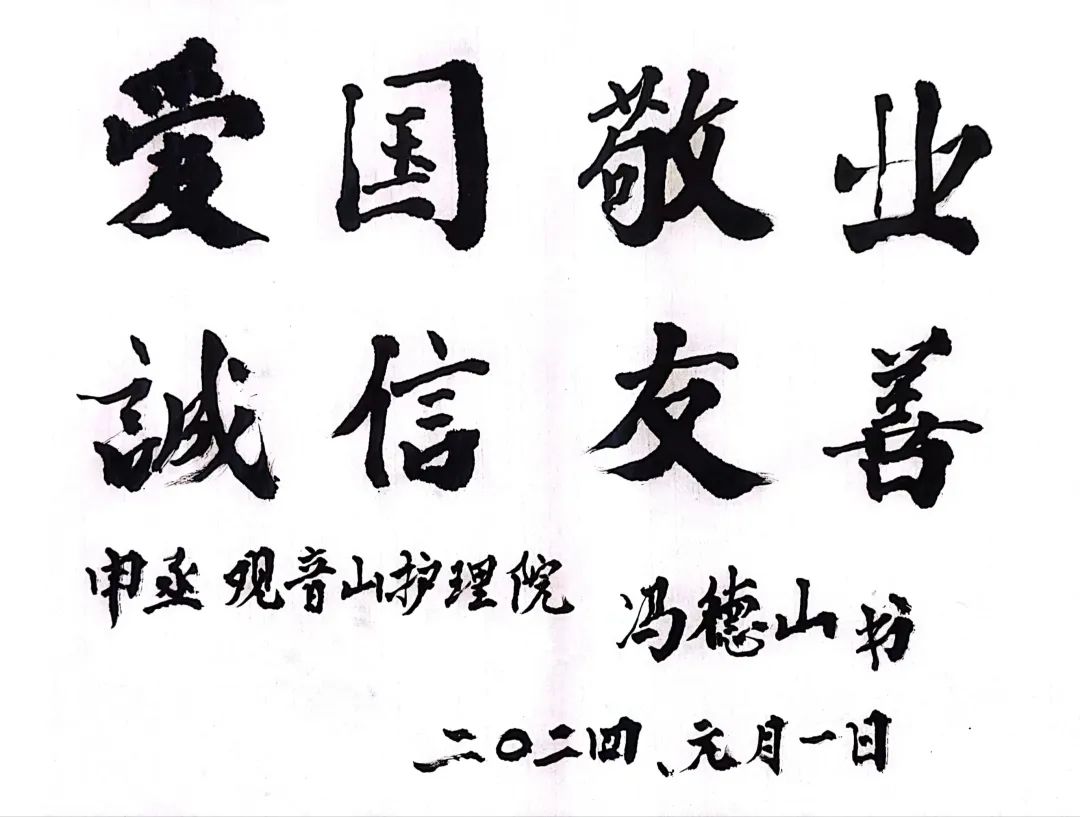 爱国敬业
誠信友善
申丞 观音山护理院
冯德山书
二〇二四、元月一日